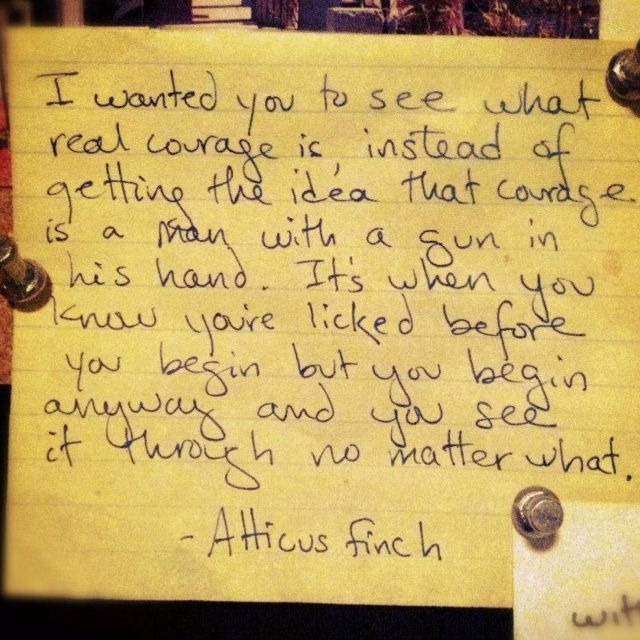 I wanted you to see what
real courage is instead of
getting the idea that courage
is a man with a gun in
his hand. It's when you
know you're licked before
you begin but you begin
anyway and you see
it through no matter what.
- Atticus Finch